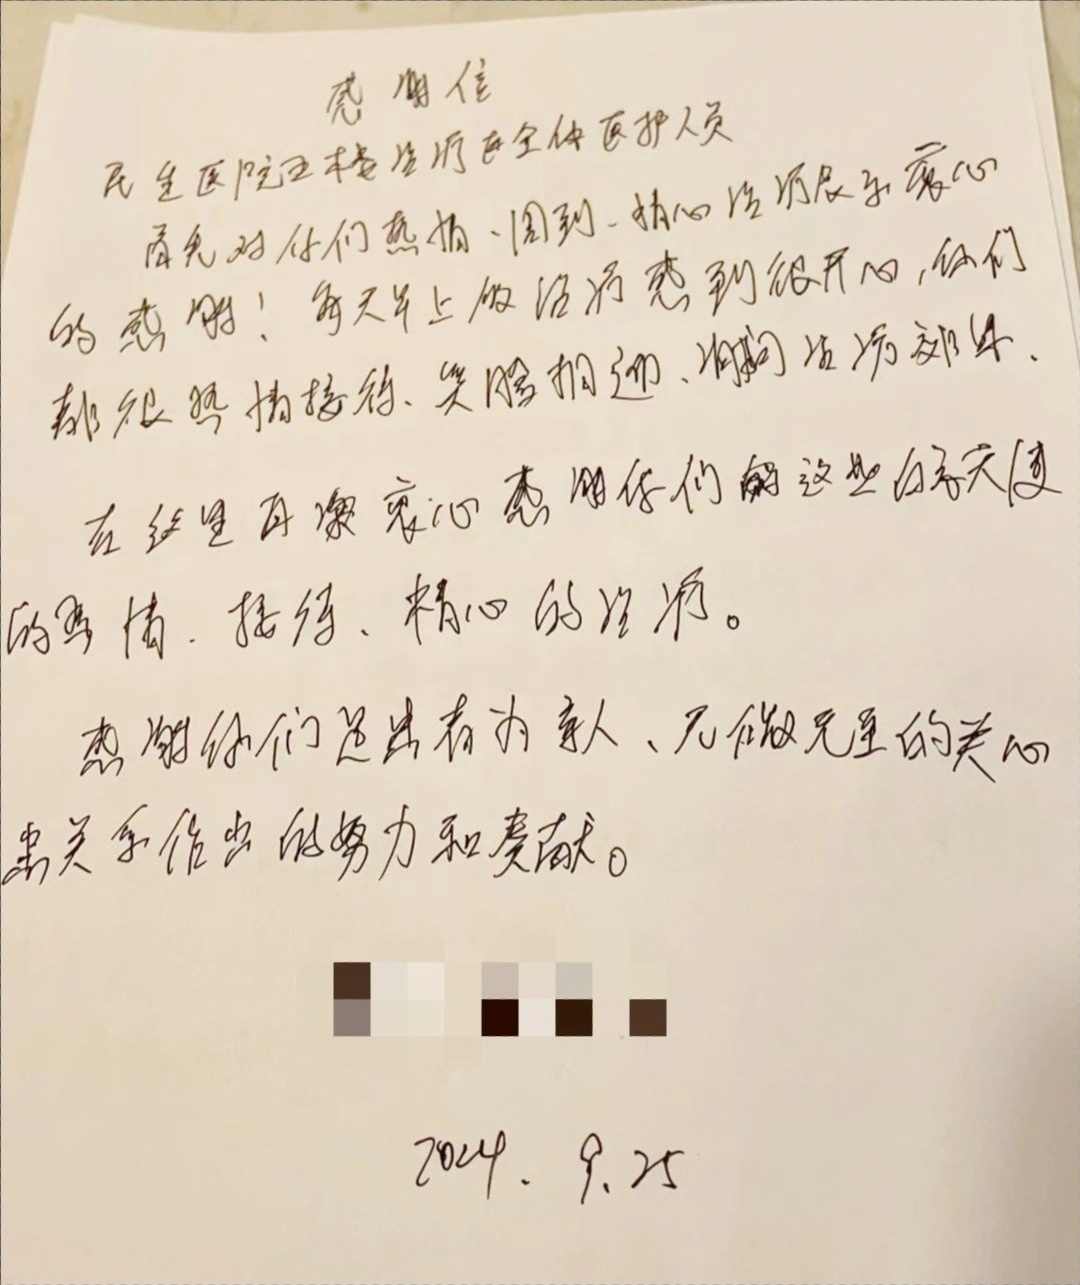 感谢信
民生医院五楼治疗区全体医护人员
首先对你们热情、周到、精心治疗表示衷心
的感谢！每天早上做治疗感到很开心，你们
都很热情接待、笑脸相迎、
在这里再深衷心感谢你们这些白衣天使
的热情、接待、精心的治疗。
感谢你们这患者为亲人、无微无至的关心
患关系作出的努力和奉献。
2024.9.25